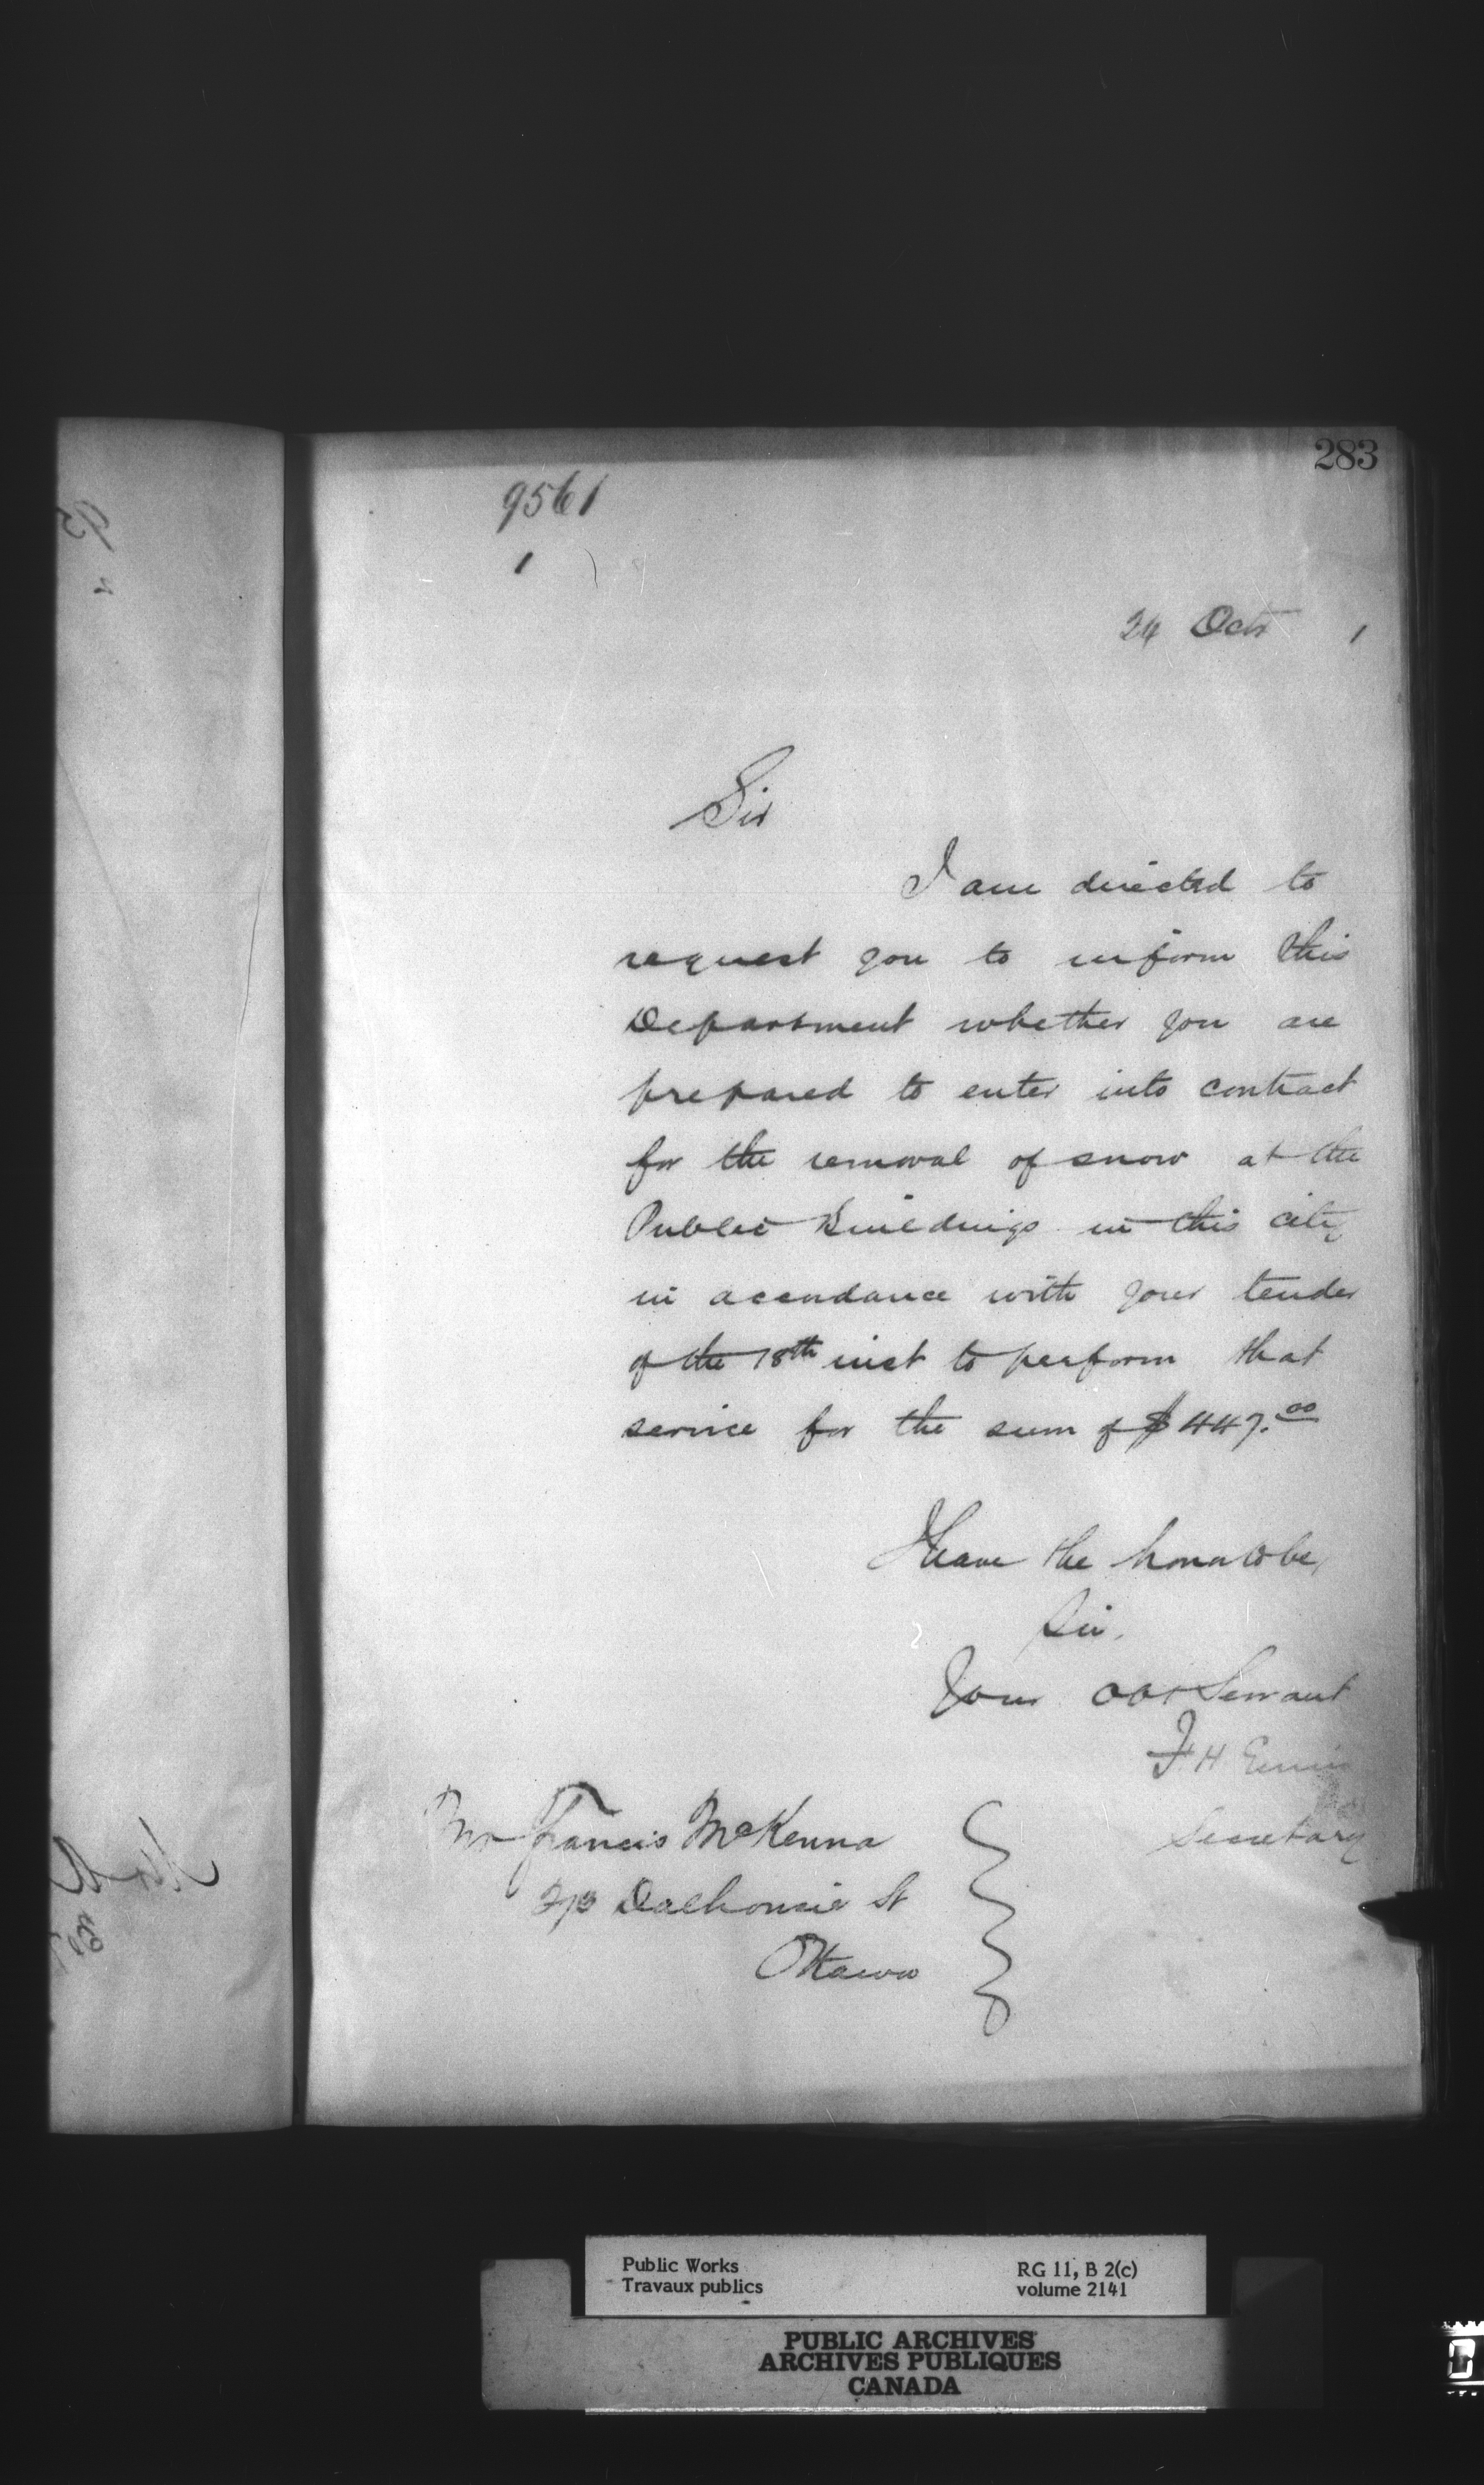 283
9561
1
24 Octr 1
Sir
I am directed to
request you to inform this
Department whether you are
prepared to enter into contract
for the removal of snow at the
Public Buildings in this city
in accordance with your tender
of the 18th inst to perform that
service for the sum of $447.00
I have the honor to be,
Sir,
Your obt Servant
F. H. Ennis
Secretary
Mr Francis McKenna
Dalhousie St
Ottawa
Public Works
Travaux publics
RG 11, B 2(c)
volume 2141
PUBLIC ARCHIVES
ARCHIVES PUBLIQUES
CANADA